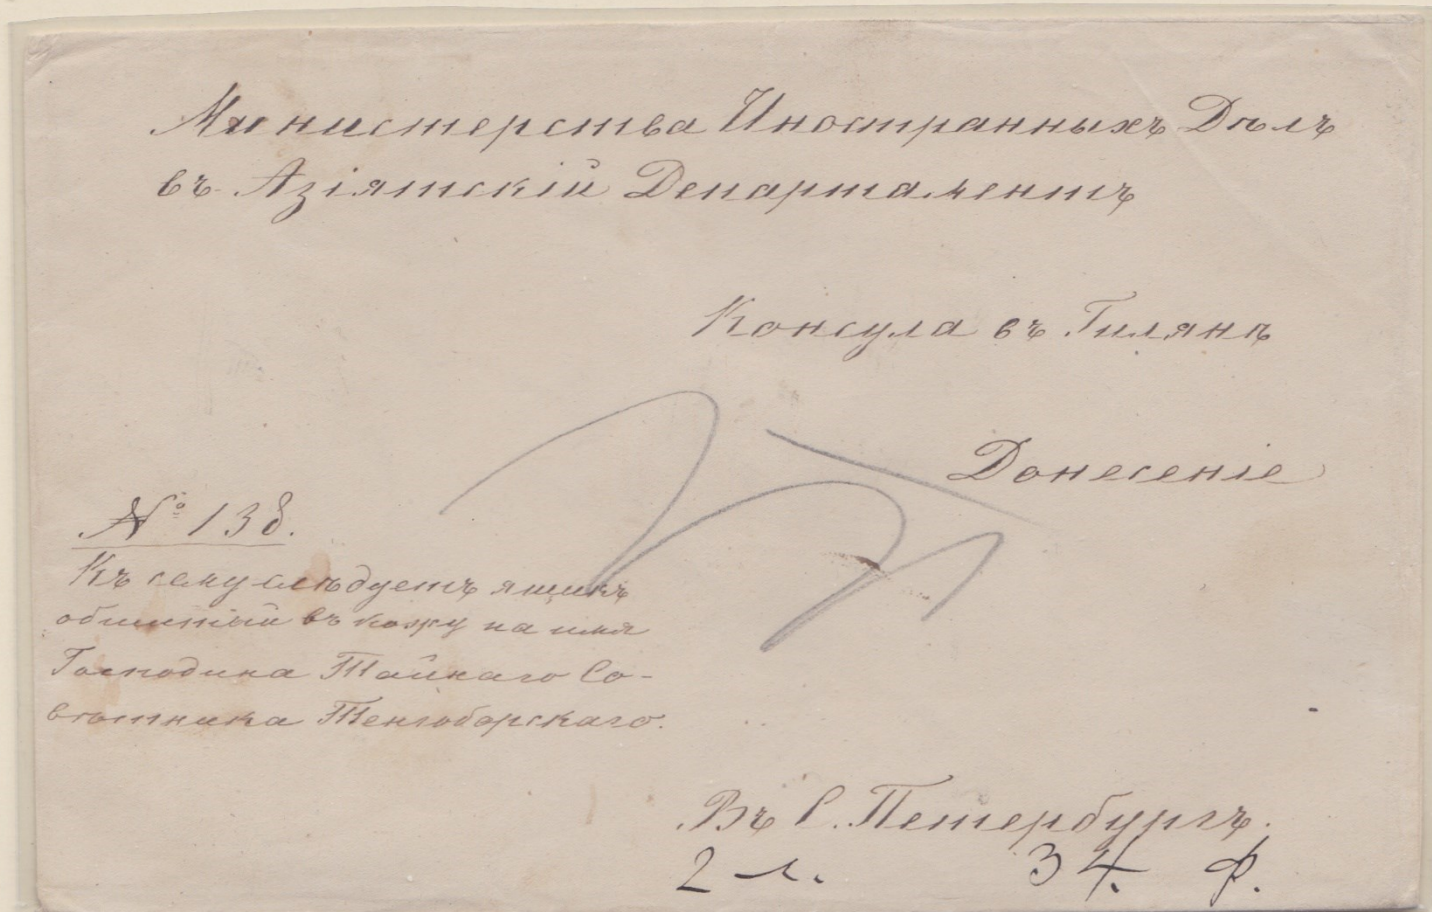 Министерства Иностранныхъ Дѣлъ
въ Азіятскій Департаментъ
Консула въ Гилянѣ
Донесеніе
№ 138.
Къ сему слѣдуетъ ящикъ
обшитый въ кожу на имя
Господина Тайнаго Со-
вѣтника Тенгоборскаго.
Въ С. Петербургъ.
2 л. 34. ф.